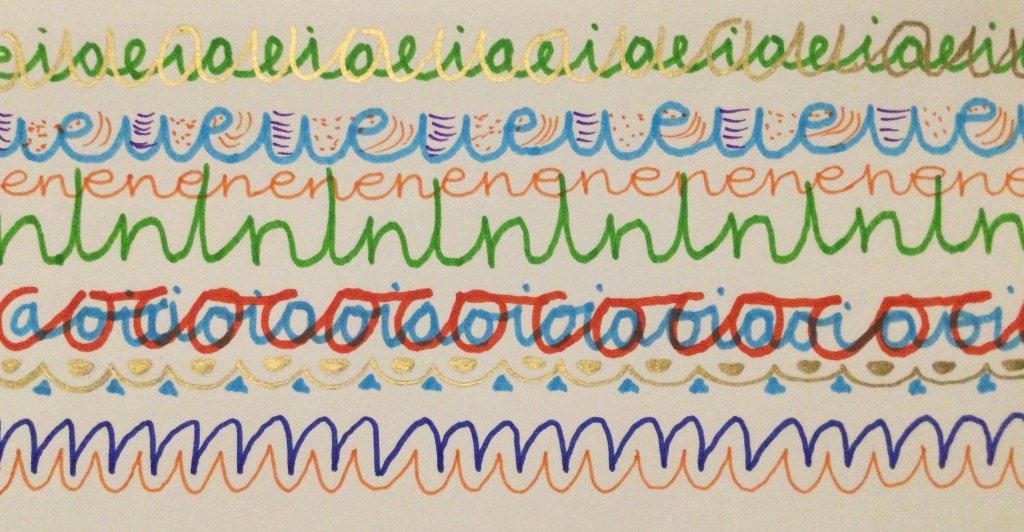 eiaeiaeiaeiaeiaeiaeiaei
ueueueueueueueu
enenenenenenenenenenenenenenenene
nlnlnlnlnlnlnlnln
aoiaoiaoiaoioiaoiaoiaoi